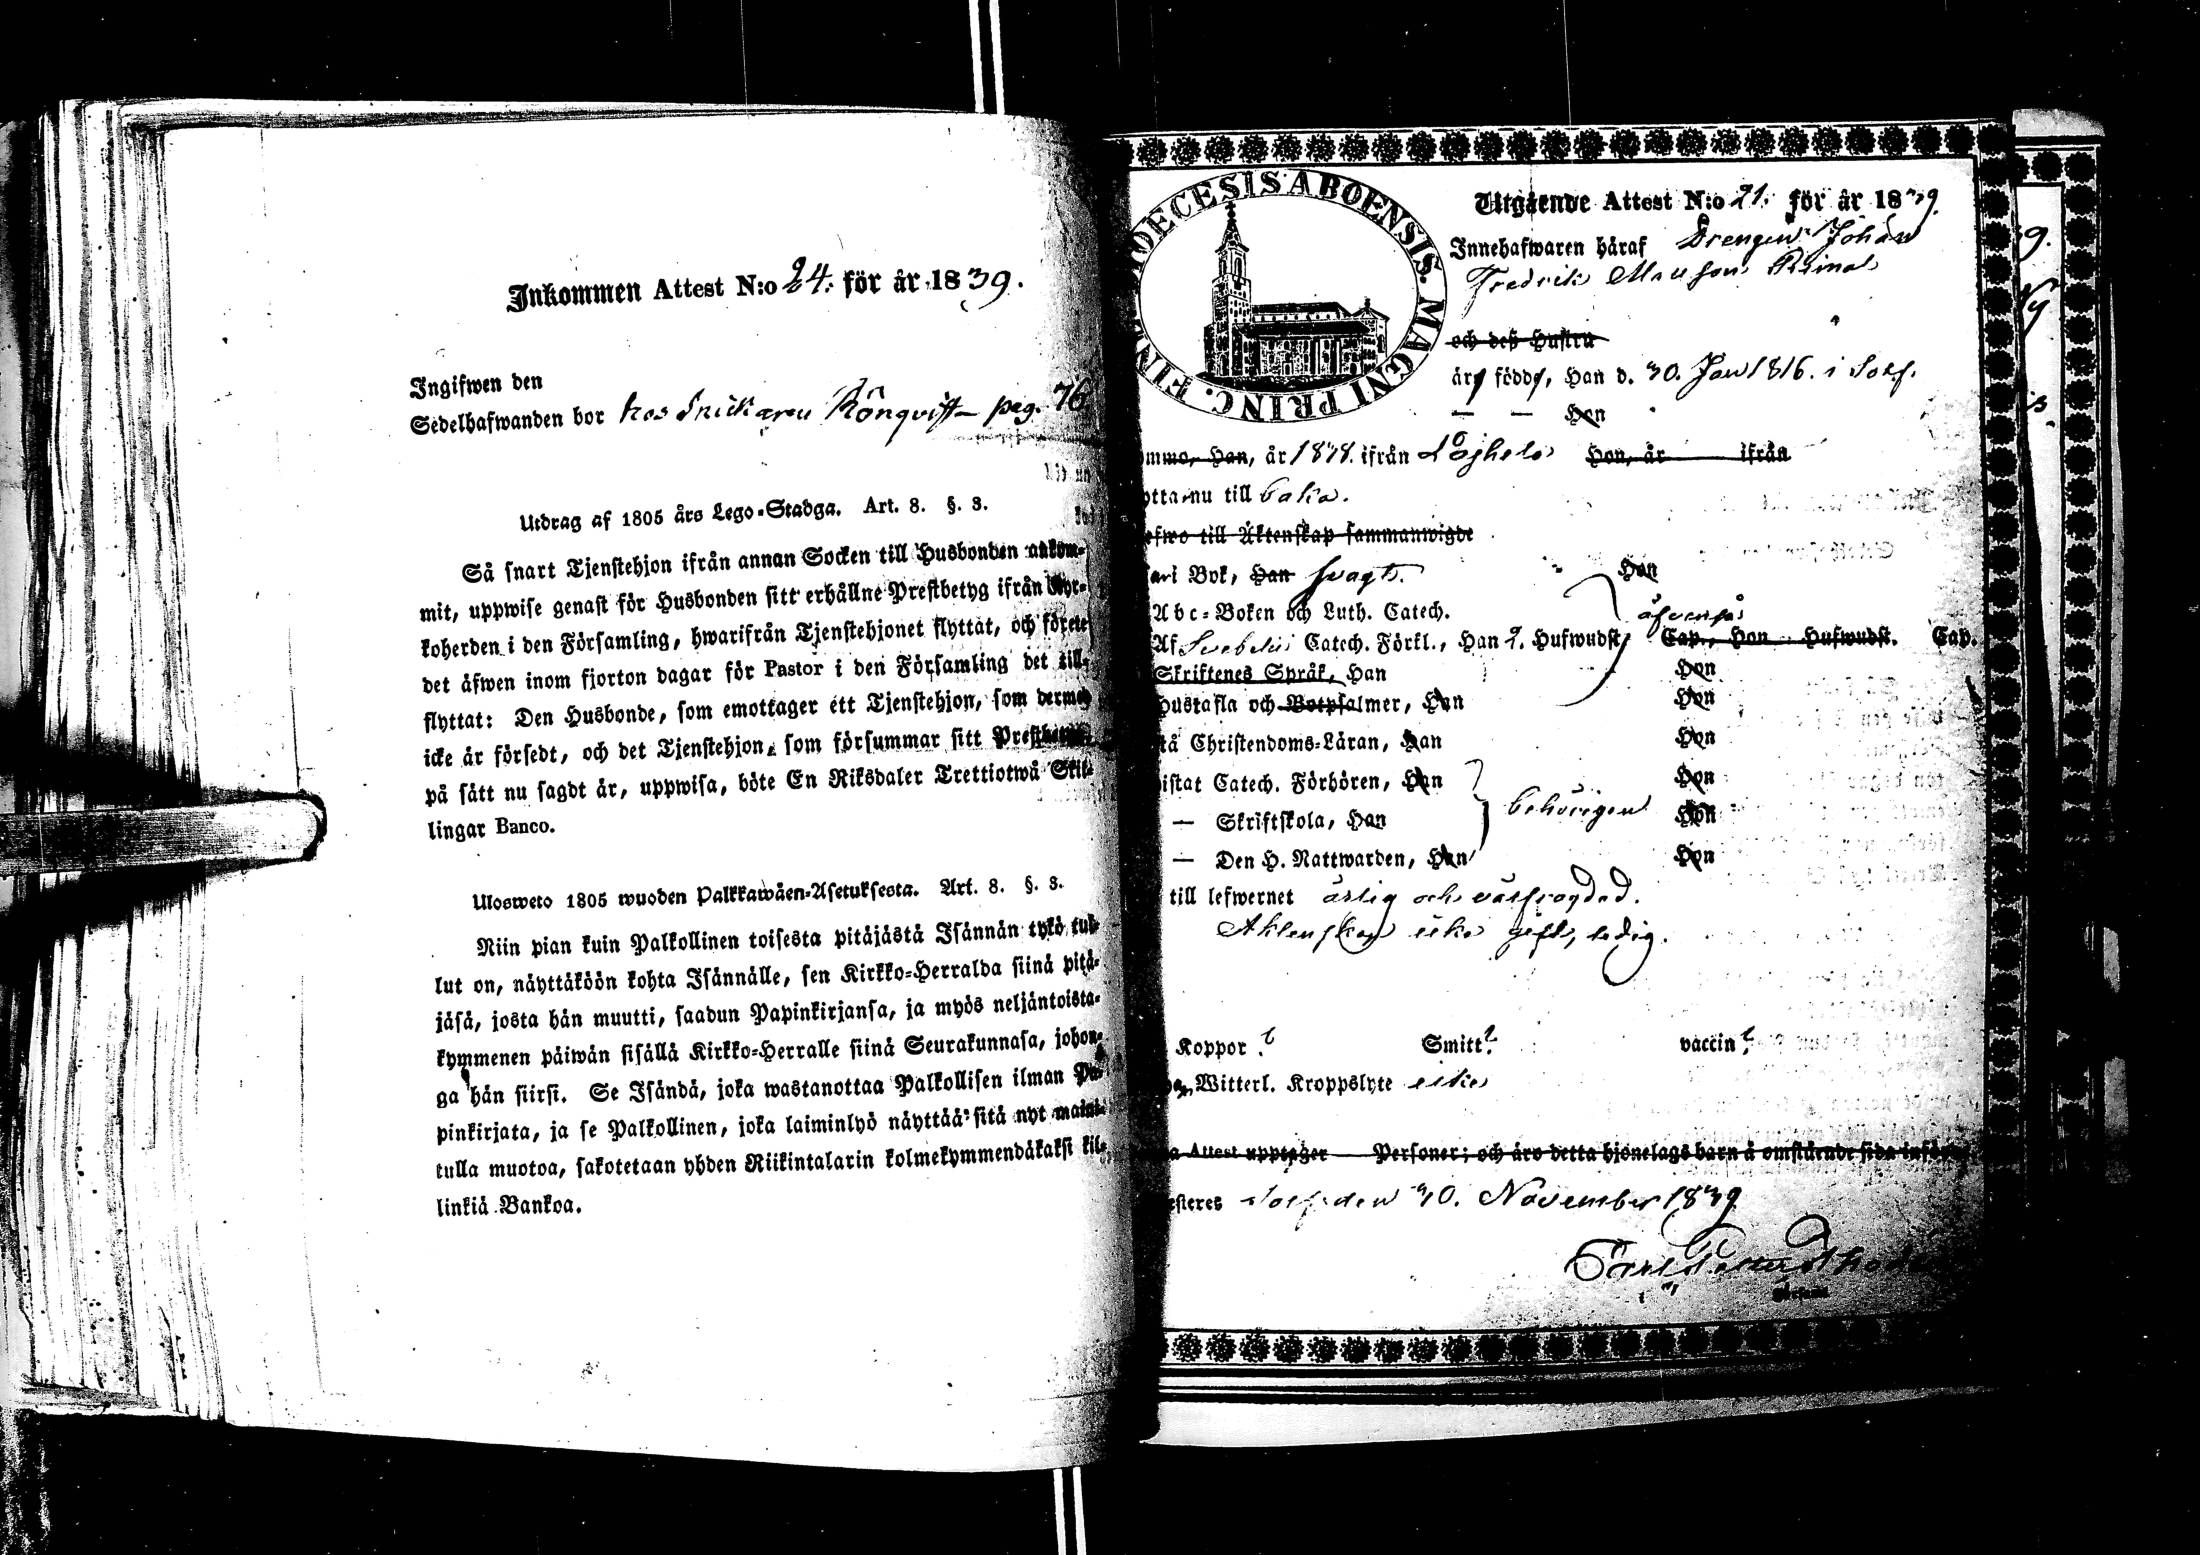 Inkommen Attest N:o 24. för år 1839.
Ingifwen den
Sedelhafwanden bor hos Snickaren Rönqvist pag. 76.
Utdrag af 1805 års Lego-Stadga. Art. 8. §. 3.
Så snart Tjenstehjon ifrån annan Socken till Husbonden ankom-
mit, uppwise genast för Husbonden sitt erhållne Prestbetyg ifrån Kyr-
koherden i den Församling, hwarifrån Tjenstehjonet flyttat, och förete
det äfwen inom fjorton dagar för Pastor i den Församling det till-
flyttat: Den Husbonde, som emottager ett Tjenstehjon, som dermed
icke är försedt, och det Tjenstehjon, som försummar sitt Prestbetyg,
på sätt nu sagdt är, uppwisa, böte En Riksdaler Trettiotwå Skil-
lingar Banco.
Ulosweto 1805 wuoden Palkkawäen-Asetuksesta. Art. 8. §. 3.
Niin pian kuin Palkollinen toisesta pitäjästä Isännän tykö tul-
lut on, näyttäköön kohta Isännälle, sen Kirkko-Herralda siinä pitä-
jäsä, josta hän muutti, saadun Papinkirjansa, ja myös neljäntoista-
kymmenen päiwän sisällä Kirkko-Herralle siinä Seurakunnasa, johon-
ga hän siirsi. Se Isändä, joka wastanottaa Palkollisen ilman Pa-
pinkirjata, ja se Palkollinen, joka laiminlyö näyttää sitä nyt maini-
tulla muotoa, sakotetaan yhden Riikintalarin kolmekymmendäkaksi kil-
linkiä Bankoa.
DIOECESIS ABOENSIS. MAGNI PRINC. FINL.
Utgående Attest N:o 21. för år 1839.
Innehafwaren häraf Drengen Johan
Fredrik
och deß Hustru
är född, Han d. 30. Jan 1816. i
— — Hon
ommo, Han, år 1838. ifrån Hon, år ifrån
otta nu till baka.
efwo till Äktenskap sammanwigde
ari Bok, Han svagt. Hon
Abc-Boken och Luth. Catech. äfvenså
Af Svebelii Catech. Förkl., Han 2. Hufwudst. Cap., Hon Hufwudst. Cap.
Skriftenes Språk, Han Hon
Hustafla och Botpsalmer, Han Hon
tå Christendoms-Läran, Han Hon
istat Catech. Förhören, Han Hon
— Skriftskola, Han behörigen Hon
— Den H. Nattwarden, Han Hon
till lefwernet ärlig och välfrägdad.
Äktenskap icke gift, ledig.
Koppor ? Smitt? vaccin?
Witterl. Kroppslyte icke
a Attest upptager — Personer; och äro detta hjonelags barn å omstående sida införde
esteres den 30. November 1839